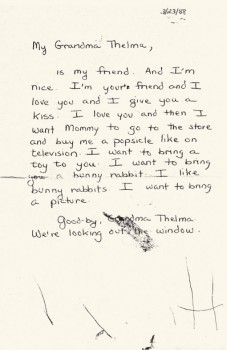 3/23/88
My Grandma Thelma,
is my friend. And I'm
nice. I'm your friend and I
love you and I give you a
kiss. I love you and then I
want Mommy to go to the store
and buy me a popsicle like on
television. I want to bring a
toy to you. I want to bring
a bunny rabbit. I like
bunny rabbits. I want to bring
a picture.
Good-by, Grandma Thelma
We're looking out the window.